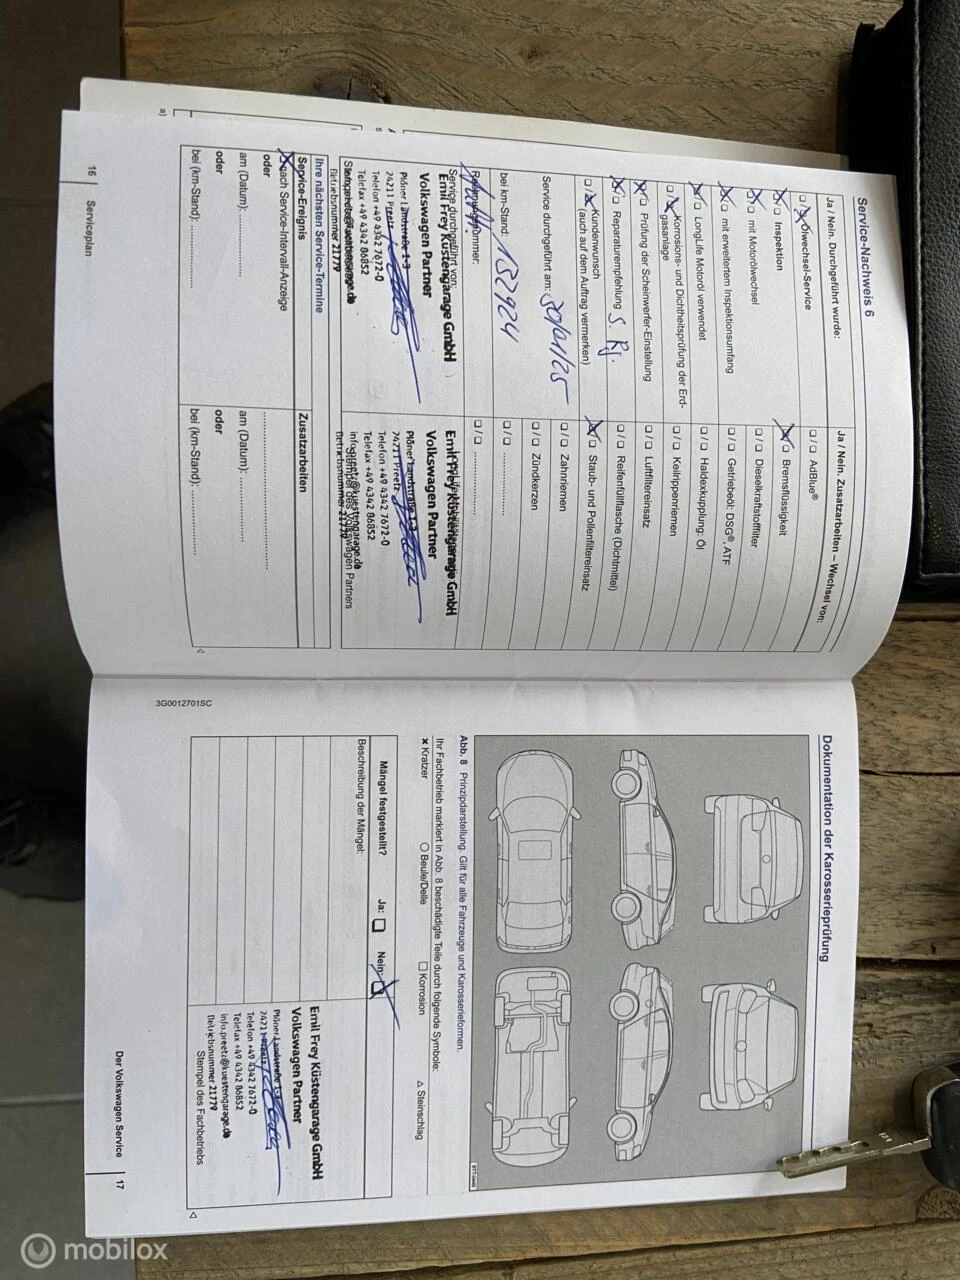 Service-Nachweis 6
Ja / Nein. Durchgeführt wurde:
Ja / Nein. Zusatzarbeiten – Wechsel von:
Ölwechsel-Service
/ AdBlue®
Inspektion
Bremsflüssigkeit
mit Motorölwechsel
/ Dieselkraftstofffilter
mit erweitertem Inspektionsumfang
/ Getriebeöl: DSG®, ATF
LongLife Motoröl verwendet
/ Haldexkupplung: Öl
Korrosions- und Dichtheitsprüfung der Erd-
gasanlage
/ Keilrippenriemen
Prüfung der Scheinwerfer-Einstellung
/ Luftfiltereinsatz
Reparaturempfehlung s. Rg.
/ Reifenfüllflasche (Dichtmittel)
Kundenwunsch
(auch auf dem Auftrag vermerken)
Staub- und Pollenfiltereinsatz
/ Zahnriemen
Service durchgeführt am: 30/01/25
/ Zündkerzen
bei km-Stand: 132924
/ ....................
/ ....................
Service durchgeführt von:
Emil Frey Küstengarage GmbH
Volkswagen Partner
Plöner Landstraße 1-3
24211 Preetz
Telefon +49 4342 7672-0
Telefax +49 4342 86852
Betriebsnummer 21779
Emil Frey Küstengarage GmbH
Volkswagen Partner
Plöner Landstraße 1-3
24211 Preetz
Telefon +49 4342 7672-0
Telefax +49 4342 86852
info.preetz@kuestengarage.de
Betriebsnummer 21779
Stempel des Volkswagen Partners
Ihre nächsten Service-Termine
Service-Ereignis
Zusatzarbeiten
nach Service-Intervall-Anzeige
oder
am (Datum):
am (Datum):
oder
oder
bei (km-Stand):
bei (km-Stand):
16 Serviceplan
3G0012701SC
Dokumentation der Karosserieprüfung
Abb. 8 Prinzipdarstellung. Gilt für alle Fahrzeuge und Karosserieformen.
Ihr Fachbetrieb markiert in Abb. 8 beschädigte Teile durch folgende Symbole:
× Kratzer ○ Beule/Delle □ Korrosion △ Steinschlag
Mängel festgestellt? Ja: Nein:
Beschreibung der Mängel:
Emil Frey Küstengarage GmbH
Volkswagen Partner
Plöner Landstraße 1-3
24211 Preetz
Telefon +49 4342 7672-0
Telefax +49 4342 86852
info.preetz@kuestengarage.de
Betriebsnummer 21779
Stempel des Fachbetriebs
Der Volkswagen Service 17
mobilox